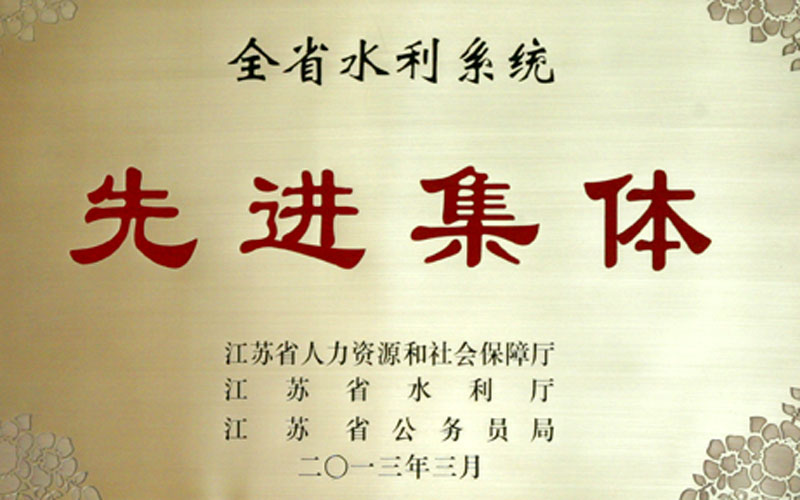 全省水利系统
先进集体
江苏省人力资源和社会保障厅
江苏省水利厅
江苏省公务员局
二〇一三年三月